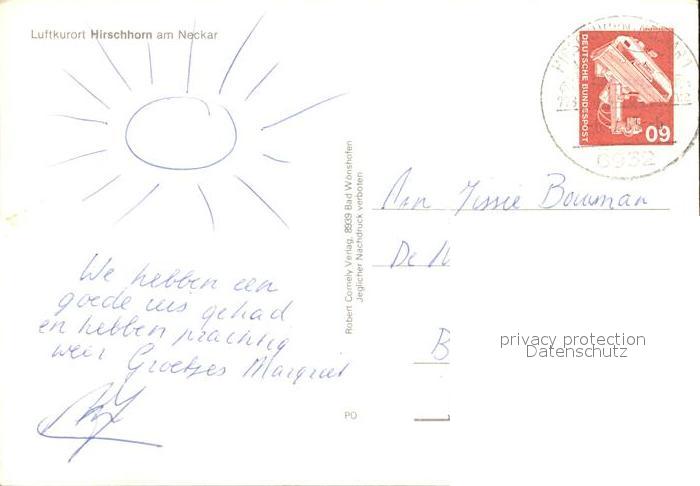 Luftkurort Hirschhorn am Neckar
DEUTSCHE BUNDESPOST
60
6932
Robert Comely Verlag, 8939 Bad Wörishofen
Jeglicher Nachdruck verboten
Aan Jissie Bouwman
De
B
We hebben een
goede reis gehad
en hebben prachtig
weer Groetjes Margriet
PO
privacy protection
Datenschutz